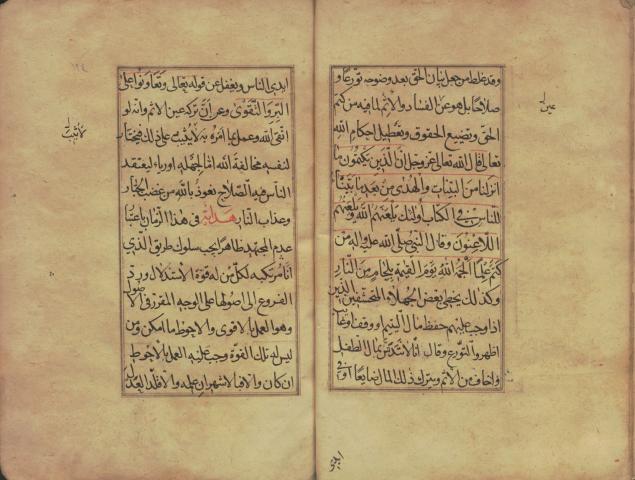 وقد غلط من جعل بيان الحق بعد وضوحه تورعا و
صلاحا بل هو عن الفساد والاثم لما فيه من كتم
الحق وتضييع الحقوق وتعطيل احكام الله
تعالى قال الله تعالى عز وجل ان الذين يكتمون ما
انزلنا من البينات والهدى من بعد ما بيناه
للناس في الكتاب اولئك يلعنهم الله ويلعنهم
اللاعنون وقال النبي صلى الله عليه واله من
كتم علما الجمه الله يوم القيمة بلجام من النار
وكذلك بعض الجهلاء الذين
اذا وجب عليهم حفظ مال اليتيم او وقف او غايب
اظهروا التورع وقال انا لا مال الطفل
واخاف من الاثم ويترك ذلك المال ضايعا او في
ايدي
ايدي الناس ويغفل عن قوله تعالى وتعاونوا على
البر والتقوى وعن ان تركه عين الاثم وانه لو
اتقى الله وعمل بما امره به على ذلك فيختار
لنفسه مخالفة الله اما لجهله او رياء ليعتقد
الناس فيه الصلاح نعوذ بالله من غضب الجبار
وعذاب النار هداية في هذا الزمان باعتبار
عدم المجتهد ظاهرا يجب سلوك طريق الذي
لكل من له قوة الاستدلال ورد
الفروع الى اصولها على الوجه المقرر في الاصول
وهو العمل بالاقوى والاحوط ما امكن ومن
ليس له تلك القوة وجب عليه العمل بالاحوط
ان كان والا فبالاشهر ان علمه والا قلد العدل